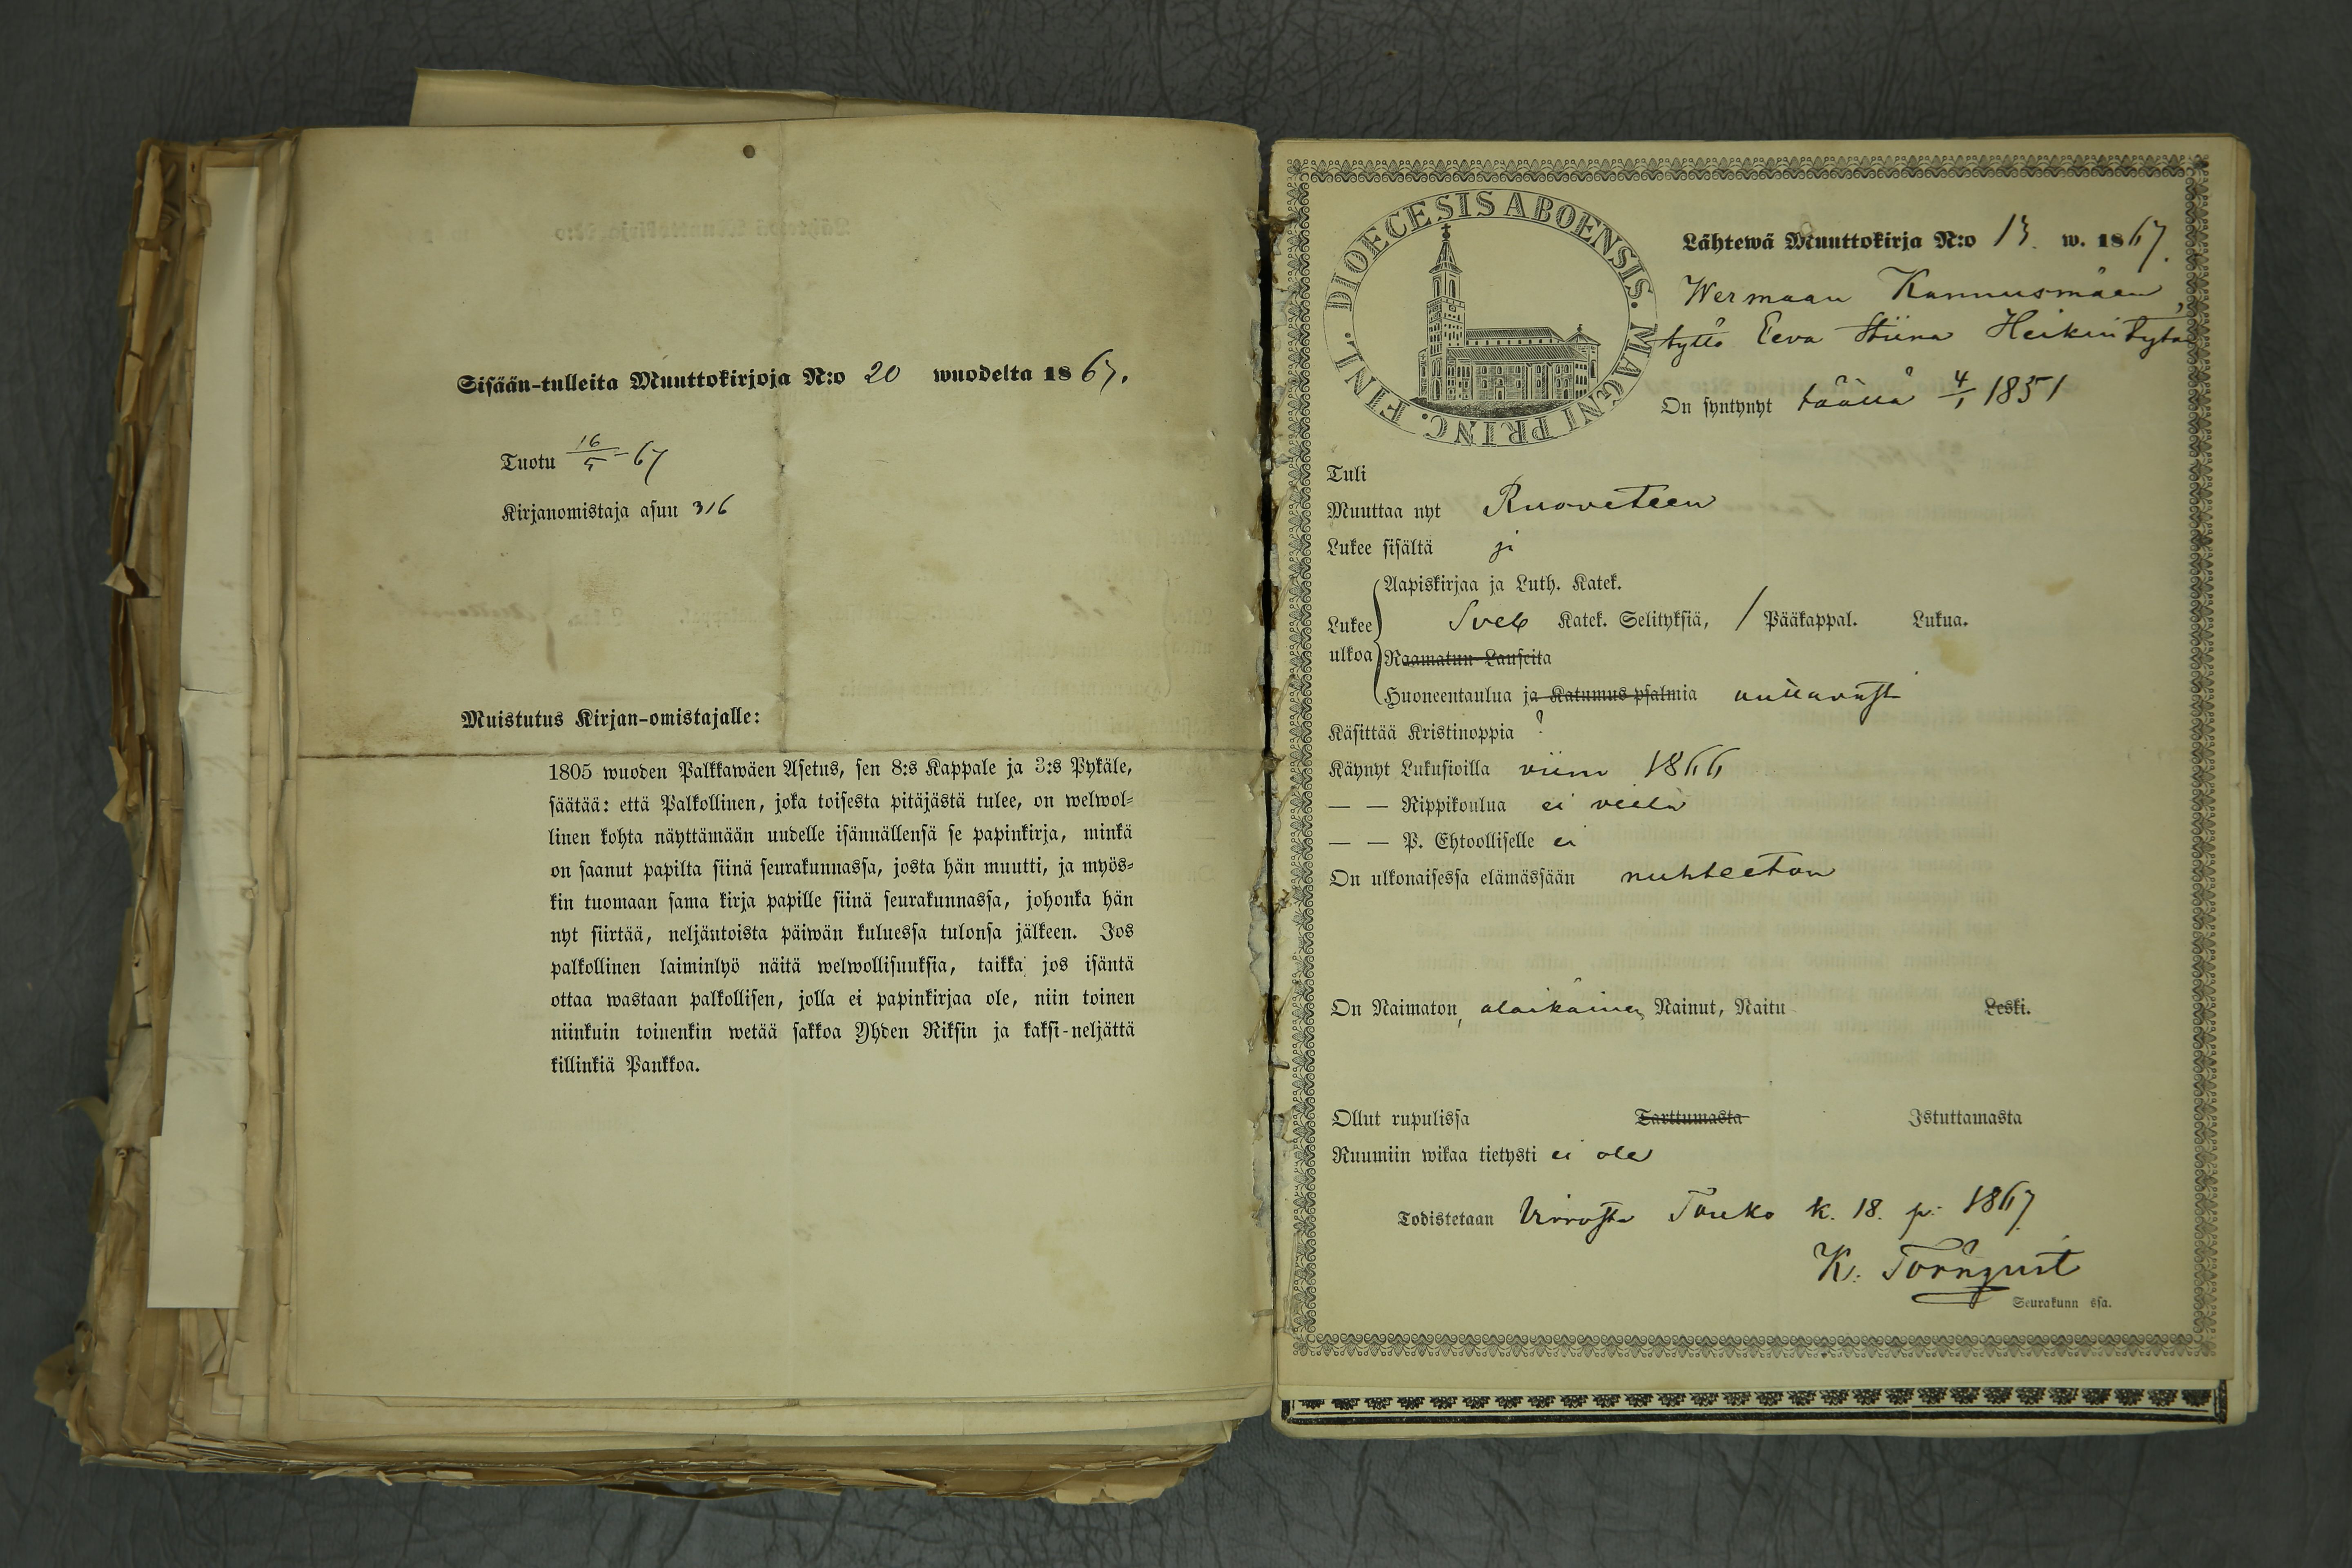 Sisään-tulleita Muuttokirjoja N:o 20 wuodelta 1867.
Tuotu 16/5-67
Kirjanomistaja asuu 316
Muistutus Kirjan-omistajalle:
1805 wuoden Palkkawäen Asetus, sen 8:s Kappale ja 3:s Pykäle,
säätää: että Palkollinen, joka toisesta pitäjästä tulee, on welwol-
linen kohta näyttämään uudelle isännällensä se papinkirja, minkä
on saanut papilta siinä seurakunnassa, josta hän muutti, ja myös-
kin tuomaan sama kirja papille siinä seurakunnassa, johonka hän
nyt siirtää, neljäntoista päiwän kuluessa tulonsa jälkeen. Jos
palkollinen laiminlyö näitä welwollisuuksia, taikka jos isäntä
ottaa wastaan palkollisen, jolla ei papinkirjaa ole, niin toinen
niinkuin toinenkin wetää sakkoa Yhden Riksin ja kaksi-neljättä
killinkiä Pankkoa.
DIOECESIS ABOENSIS. MAGNI PRINC. FINL.
Lähtewä Muuttokirja N:o 13. w. 1867.
Wermaan Kannusmäen,
tyttö Eeva Stiina Heikintytär
On syntynyt täällä 4/1 1851
Tuli
Muuttaa nyt Ruoveteen
Lukee sisältä
Aapiskirjaa ja Luth. Katek.
Lukee Sveb Katek. Selityksiä, / Pääkappal. Lukua.
ulkoa Raamatun Lauseita
Huoneentaulua ja Katumus psalmia auttavasti
Käsittää Kristinoppia ?
Käynyt Lukusioilla viim 1866
— — Rippikoulua ei vielä
— — P. Ehtoolliselle ei
On ulkonaisessa elämässään nuhteeton
On Naimaton, alaikäinen Nainut, Naitu Leski.
Ollut rupulissa Tarttumasta Istuttamasta
Ruumiin wikaa tietysti ei ole
Todistetaan Virroista Touko k. 18. p. 1867.
K. Törnqvist
Seurakunn ssa.